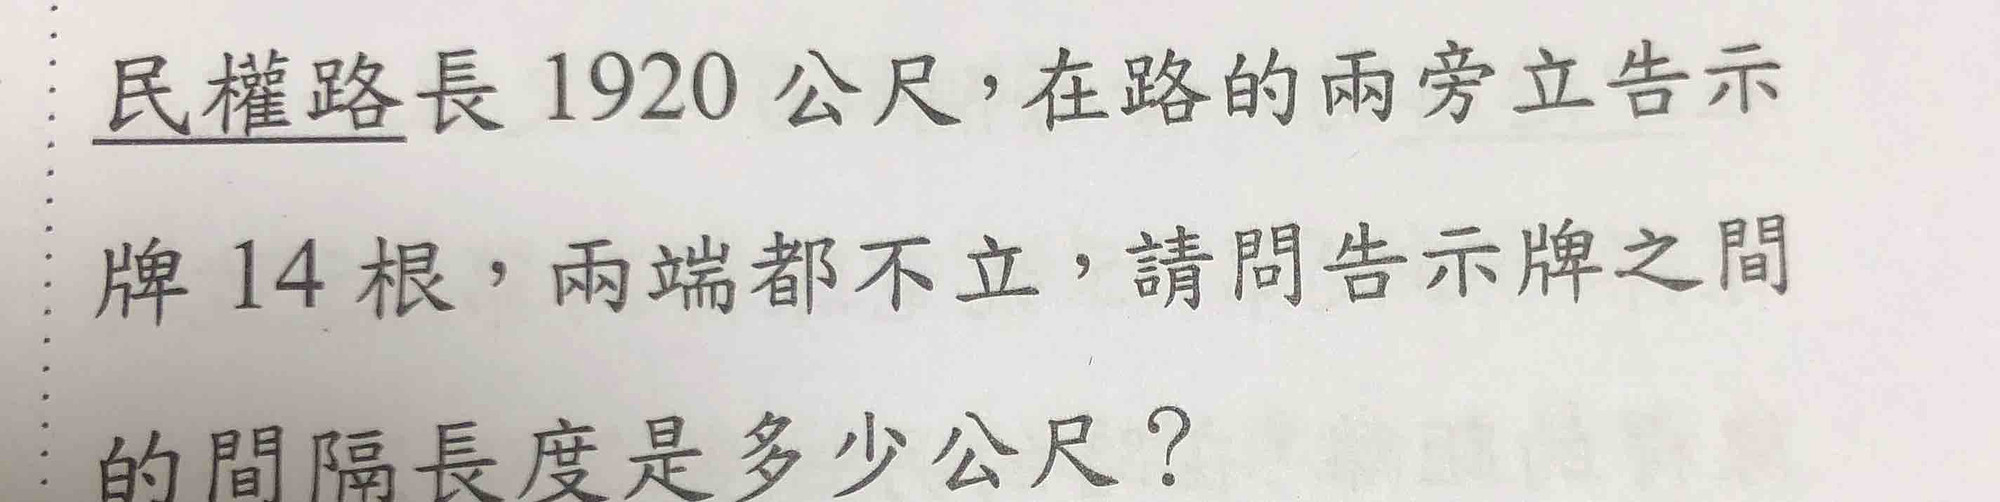 民權路長 1920 公尺，在路的兩旁立告示
牌 14 根，兩端都不立，請問告示牌之間
的間隔長度是多少公尺？